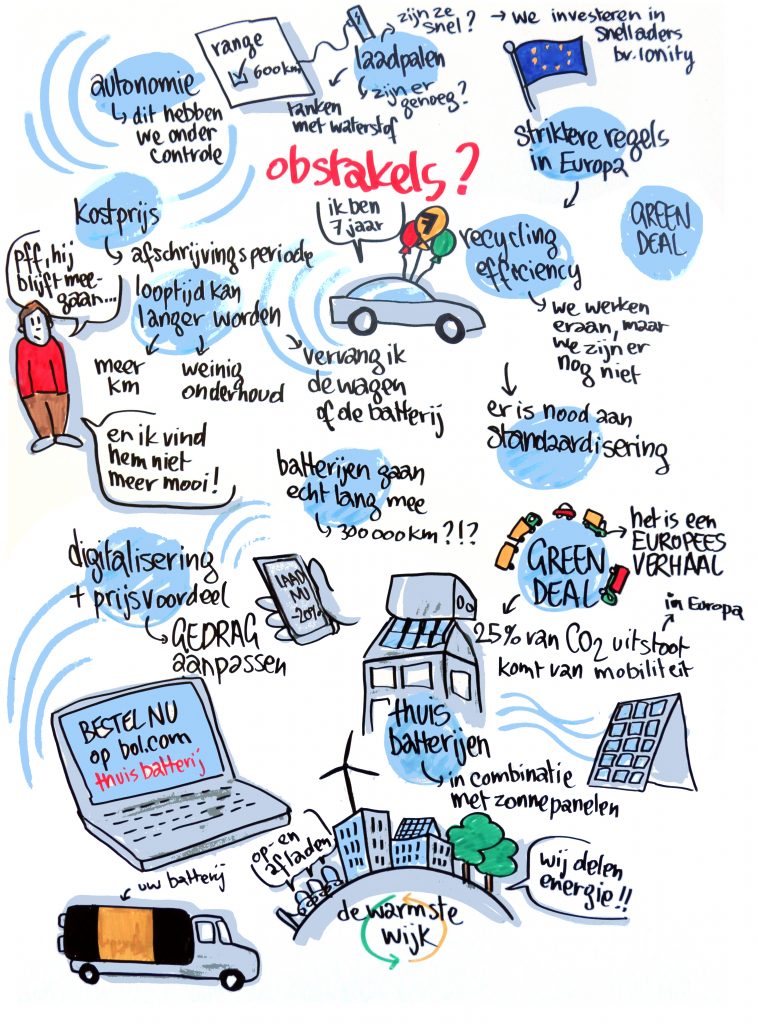 zijn ze
snel?
we investeren in
snelladers
bv. Ionity
range
600km
laadpalen
autonomie
dit hebben
we onder
controle
tanken
met waterstof
zijn er
genoeg?
striktere regels
in Europa
obstakels?
GREEN
DEAL
kostprijs
afschrijvingsperiode
looptijd kan
langer worden
meer
km
weinig
onderhoud
pff, hij
blijft mee-
gaan...
en ik vind
hem niet
meer mooi!
ik ben
7 jaar
7
vervang ik
de wagen
of de batterij
recycling
efficiency
we werken
eraan, maar
we zijn er
nog niet
er is nood aan
standaardisering
batterijen gaan
echt lang mee
300 000km?!?
digitalisering
+ prijsvoordeel
GEDRAG
aanpassen
LAAD
NU
-20%
GREEN
DEAL
het is een
EUROPEES
VERHAAL
in Europa
25% van CO2 uitstoot
komt van mobiliteit
BESTEL NU
op bol.com
thuisbatterij
thuis
batterijen
in combinatie
met zonnepanelen
uw batterij
op- en
afladen
de warmste
wijk
wij delen
energie!!